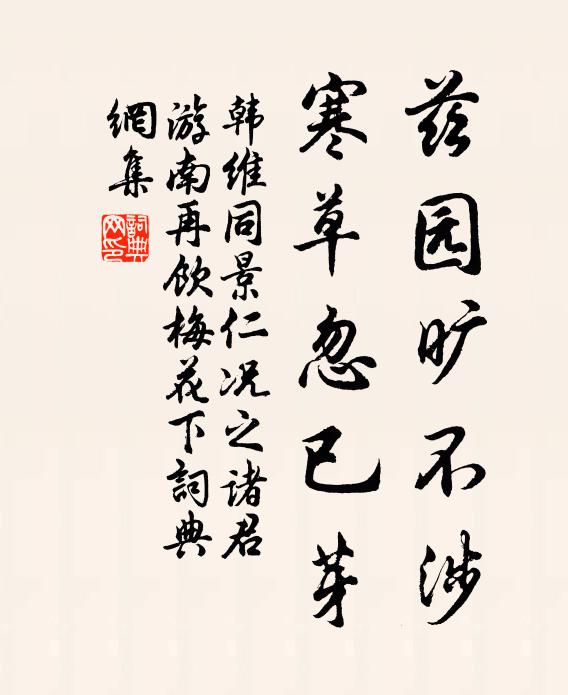 茲园旷不涉
寒草忽已芽
韩维同景仁况之诸君
游南再饮梅花下詞典
網集
詞典
网印